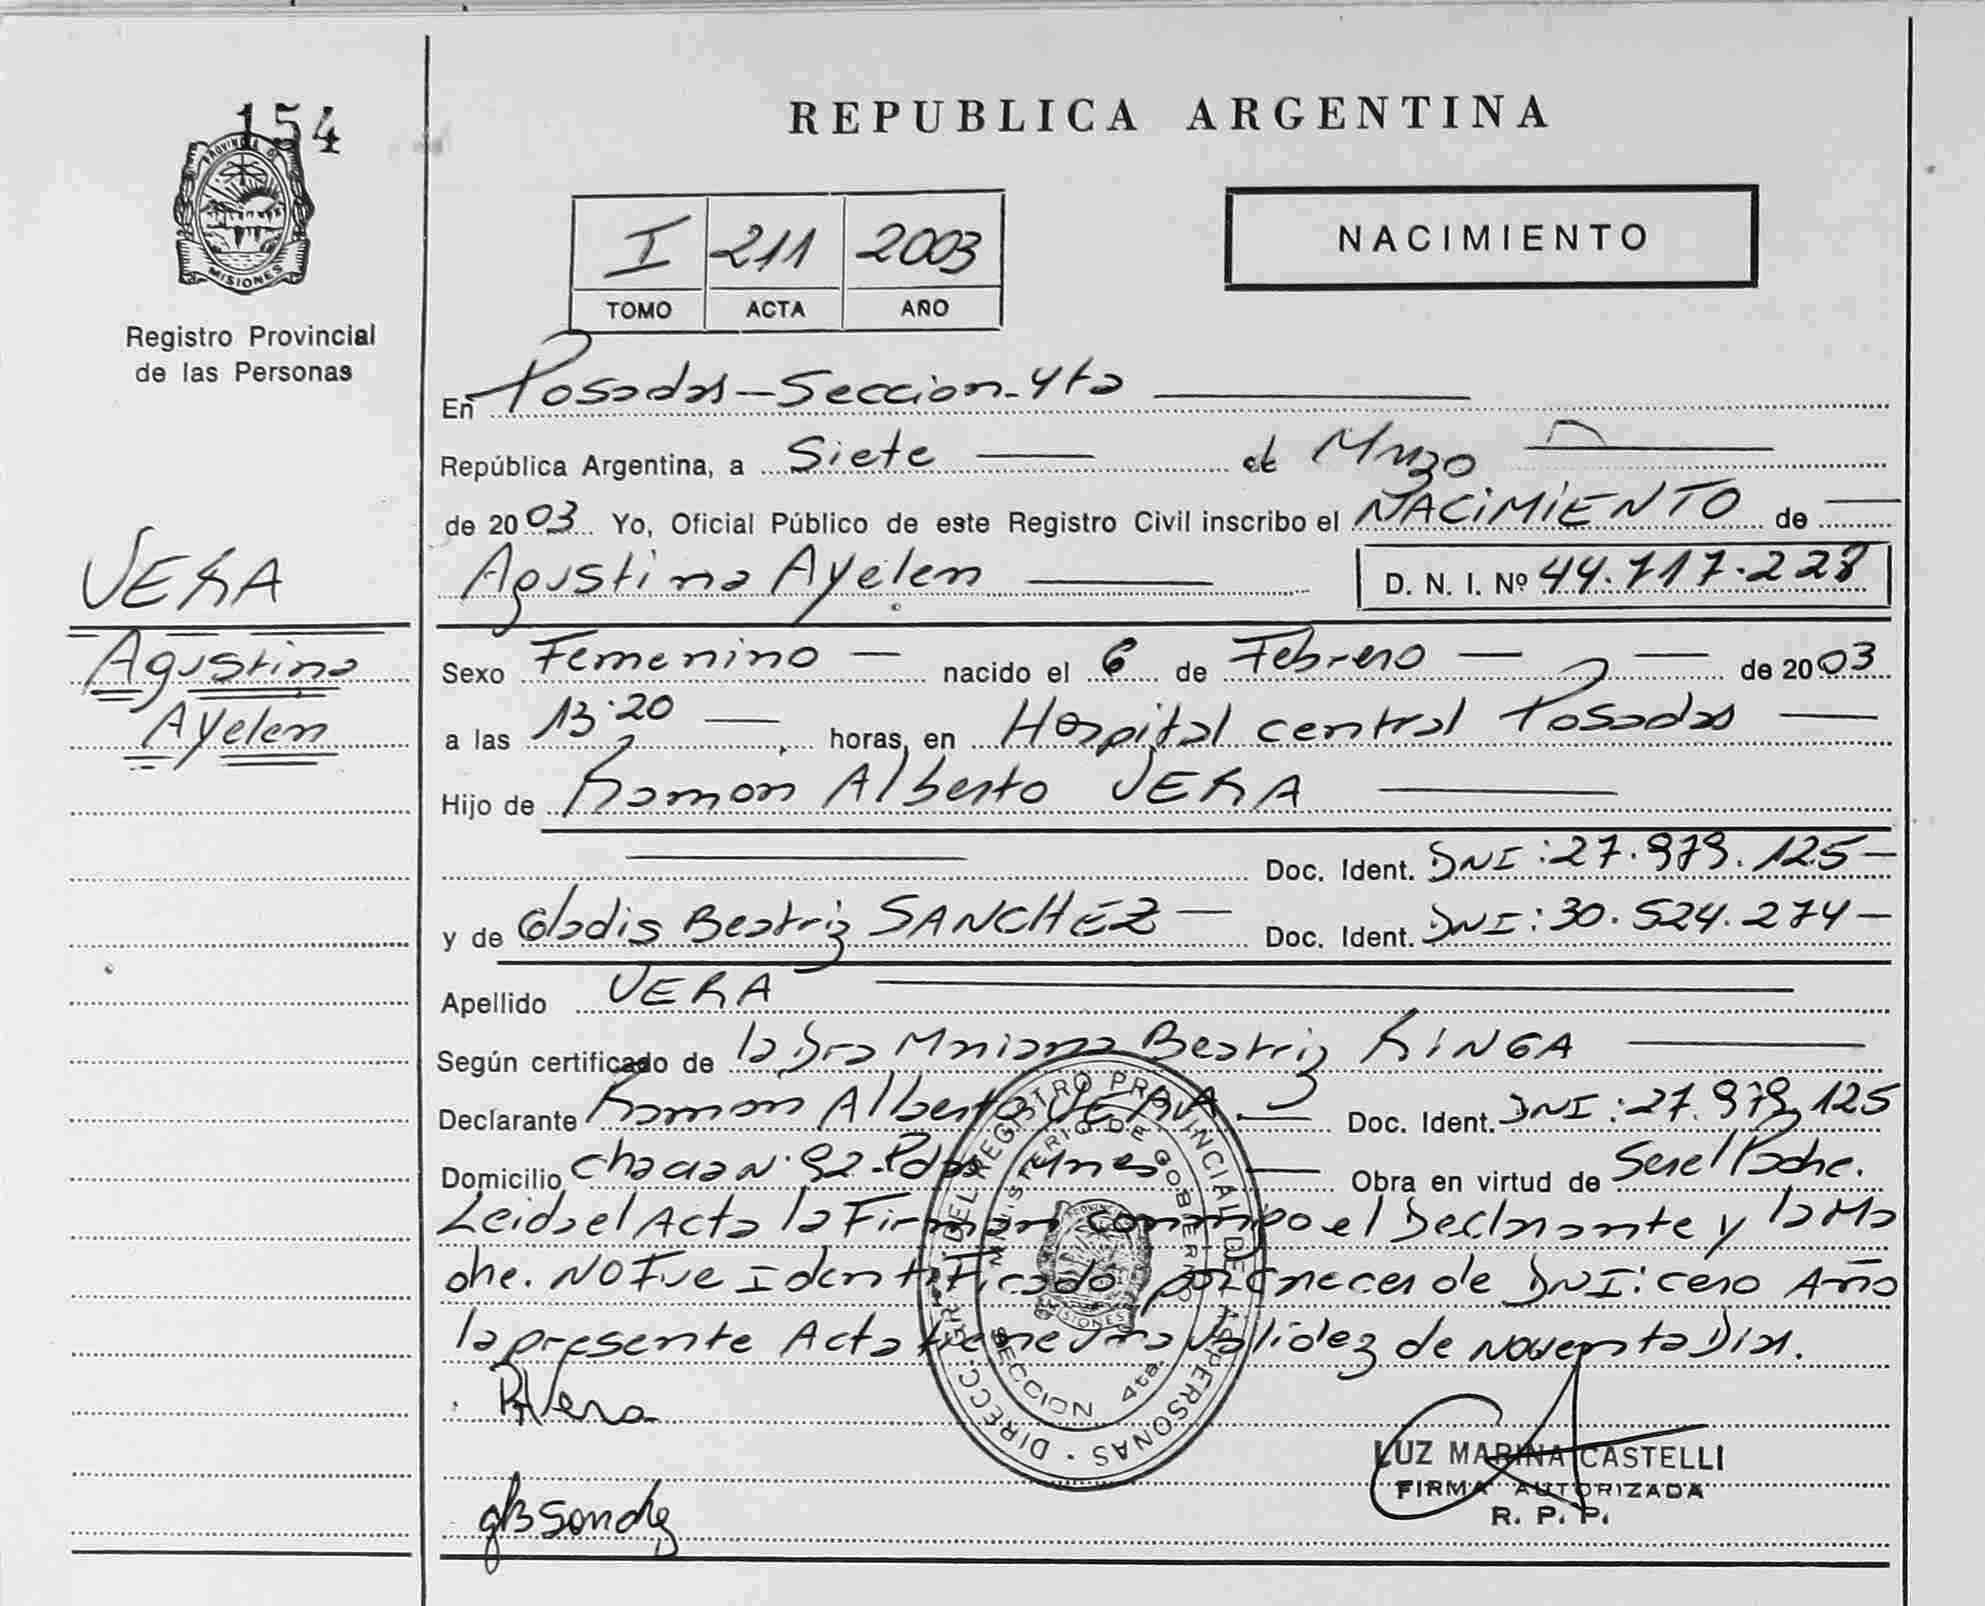 154
PROVINCIA DE
MISIONES
Registro Provincial
de las Personas
VERA
Agustina
Ayelen
REPUBLICA ARGENTINA
I 211 2003
TOMO ACTA AÑO
NACIMIENTO
En Posadas - Seccion - 4ta
República Argentina, a Siete de Marzo
de 2003 Yo, Oficial Público de este Registro Civil inscribo el NACIMIENTO de
Agustina Ayelen D. N. I. Nº 44.717.228
Sexo Femenino nacido el 6 de Febrero de 2003
a las 13:20 horas, en Hospital central Posadas
Hijo de Ramon Alberto VERA
Doc. Ident. DNI: 27.979.125
y de Gladis Beatriz SANCHEZ Doc. Ident. DNI: 30.524.274
Apellido VERA
Según certificado de la Dra Mariana Beatriz RINGA
Declarante Ramon Alberto VERA Doc. Ident. DNI: 27.979.125
Domicilio Chacra Nº 92 - Pdas Mnes Obra en virtud de Ser el Padre.
Leida el Acta la Firman conmigo el Declarante y la Ma
dre. NO Fue Identificado por carecer de DNI: cero Año
la presente Acta tiene una validez de noventa Dias.
RAVera
gBSanchez
DIRECC. GRAL. DEL REGISTRO PROVINCIAL DE LAS PERSONAS
MINISTERIO DE GOBIERNO
SECCION 4ta.
MISIONES
LUZ MARINA CASTELLI
FIRMA AUTORIZADA
R. P. P.